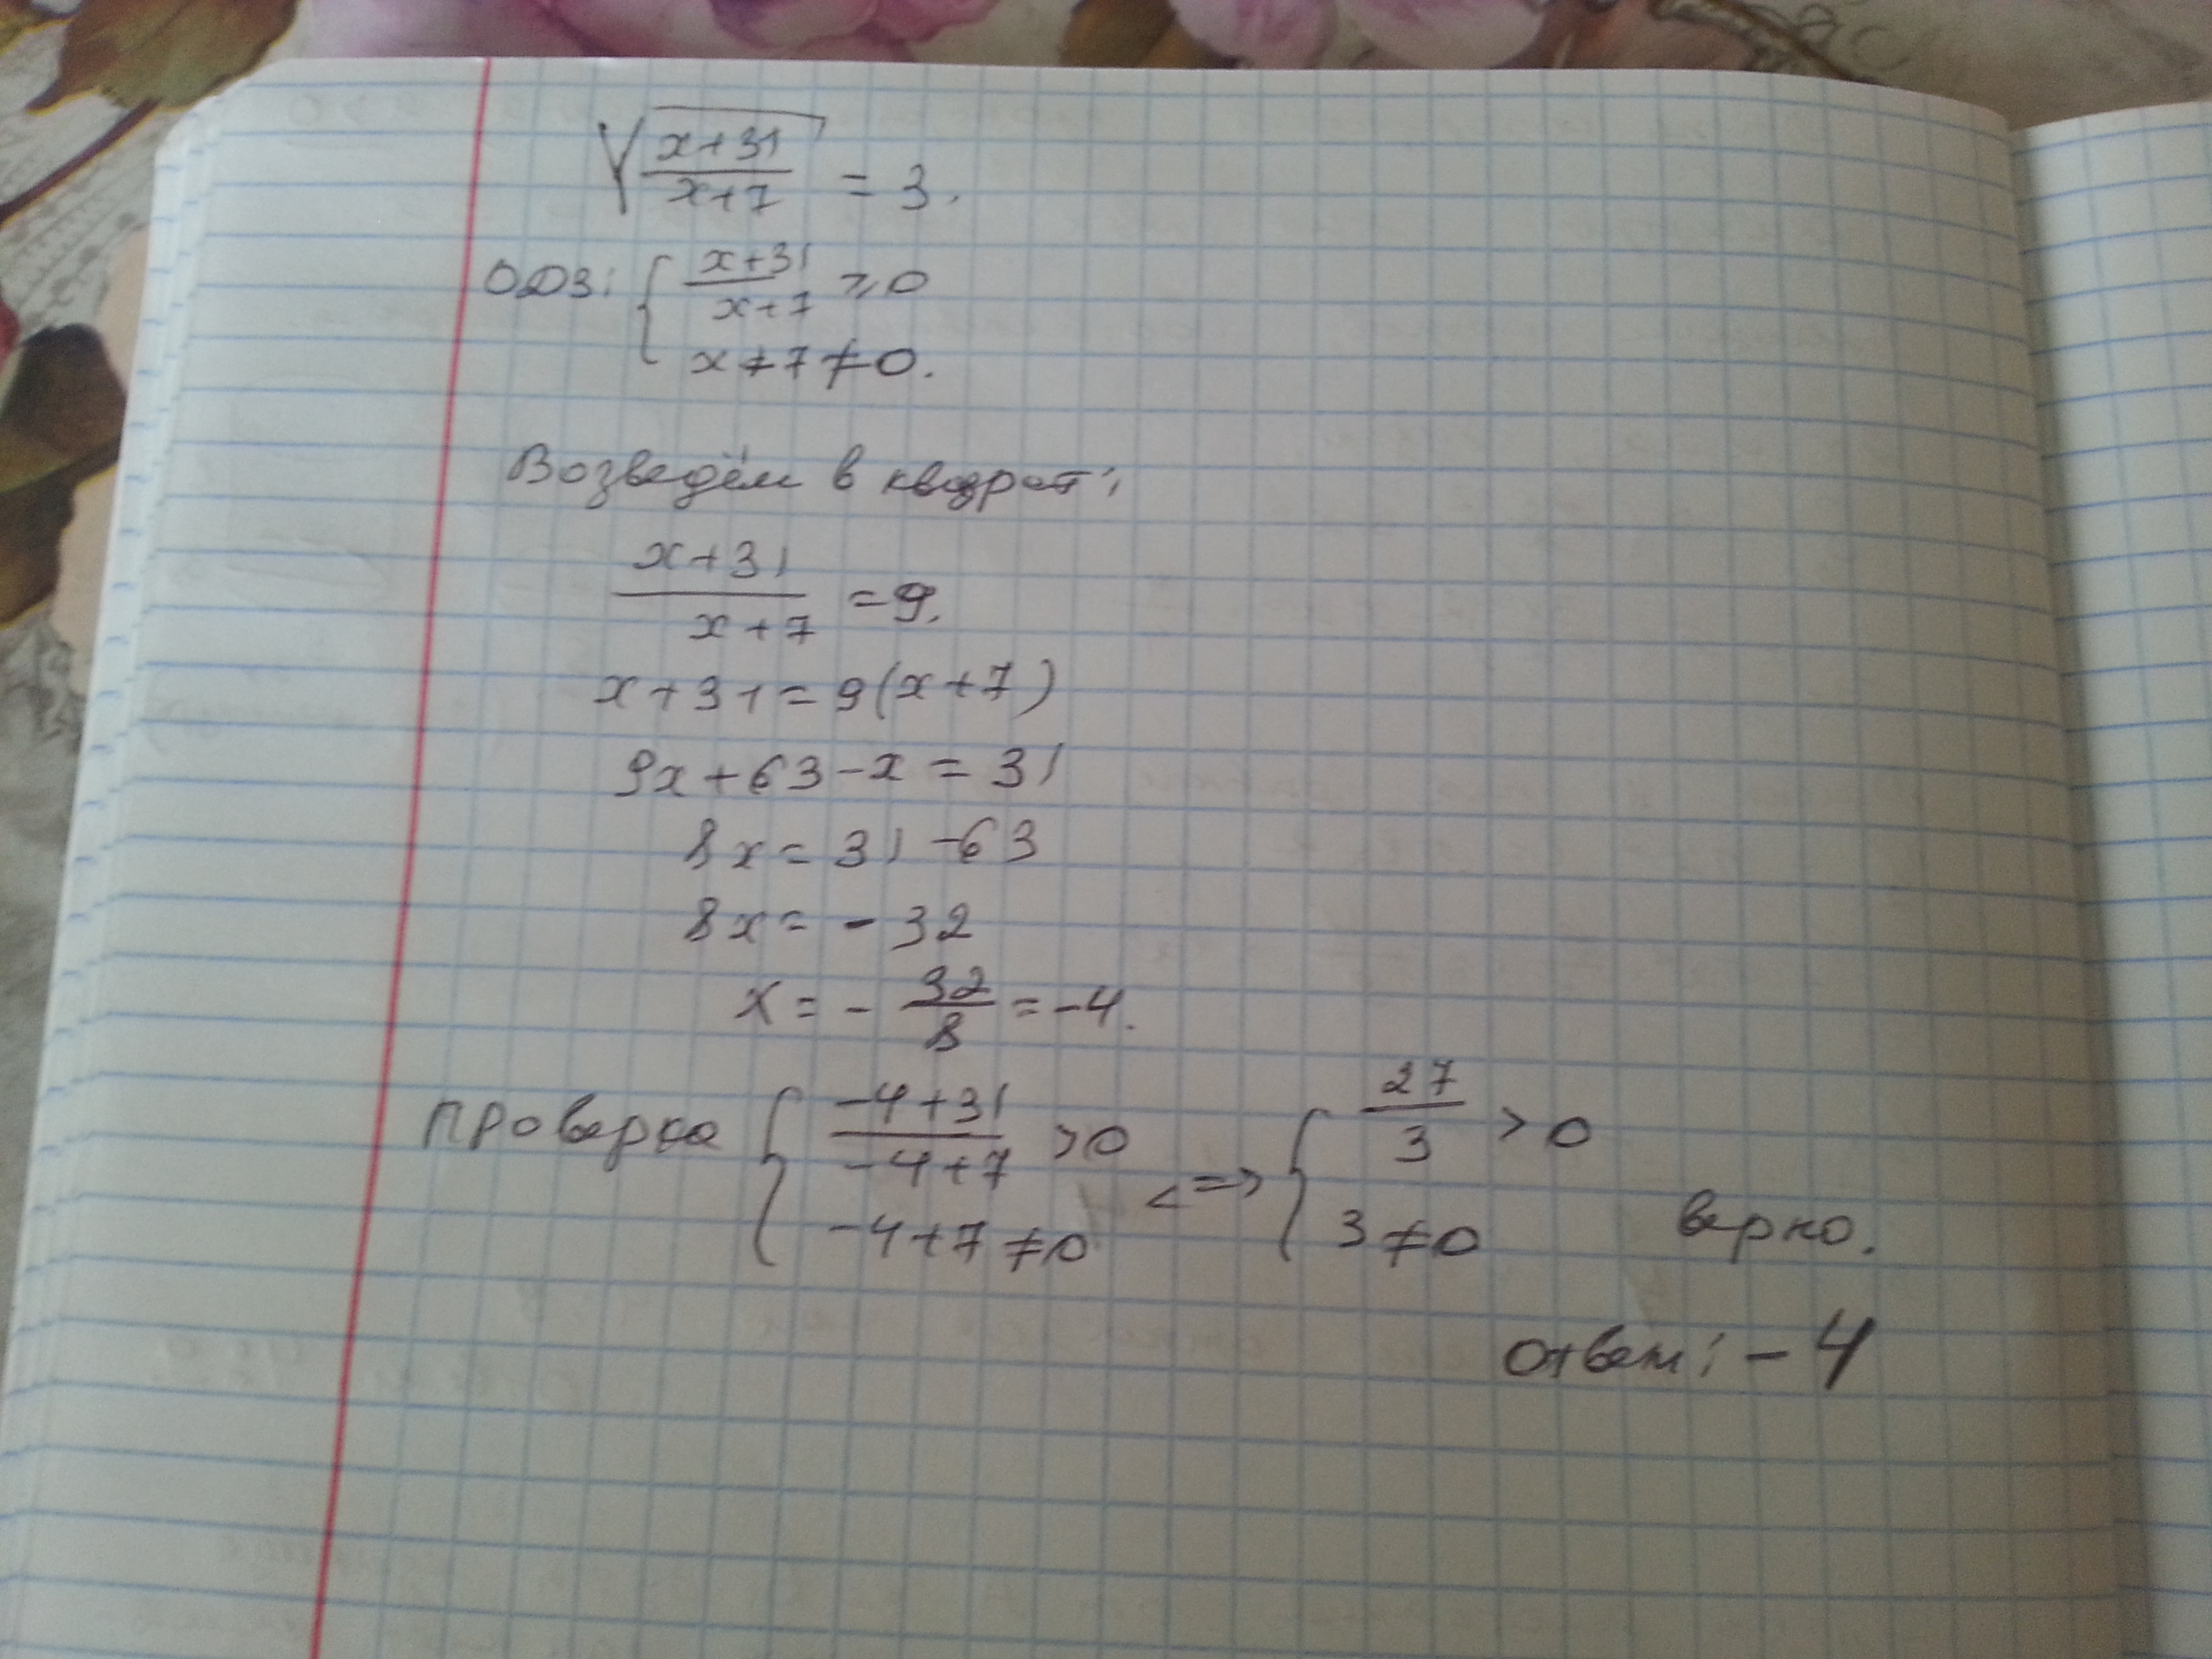 √((x+31)/(x+7)) = 3.
ОДЗ: { (x+31)/(x+7) ≥ 0
x+7≠0.
Возведём в квадрат:
(x+31)/(x+7) = 9.
x+31=9(x+7)
9x+63-x=31
8x=31-63
8x=-32
x=-32/8=-4.
проверка { (-4+31)/(-4+7) >0 <=> { 27/3 > 0
-4+7≠0 3≠0 верно.
ответ: -4